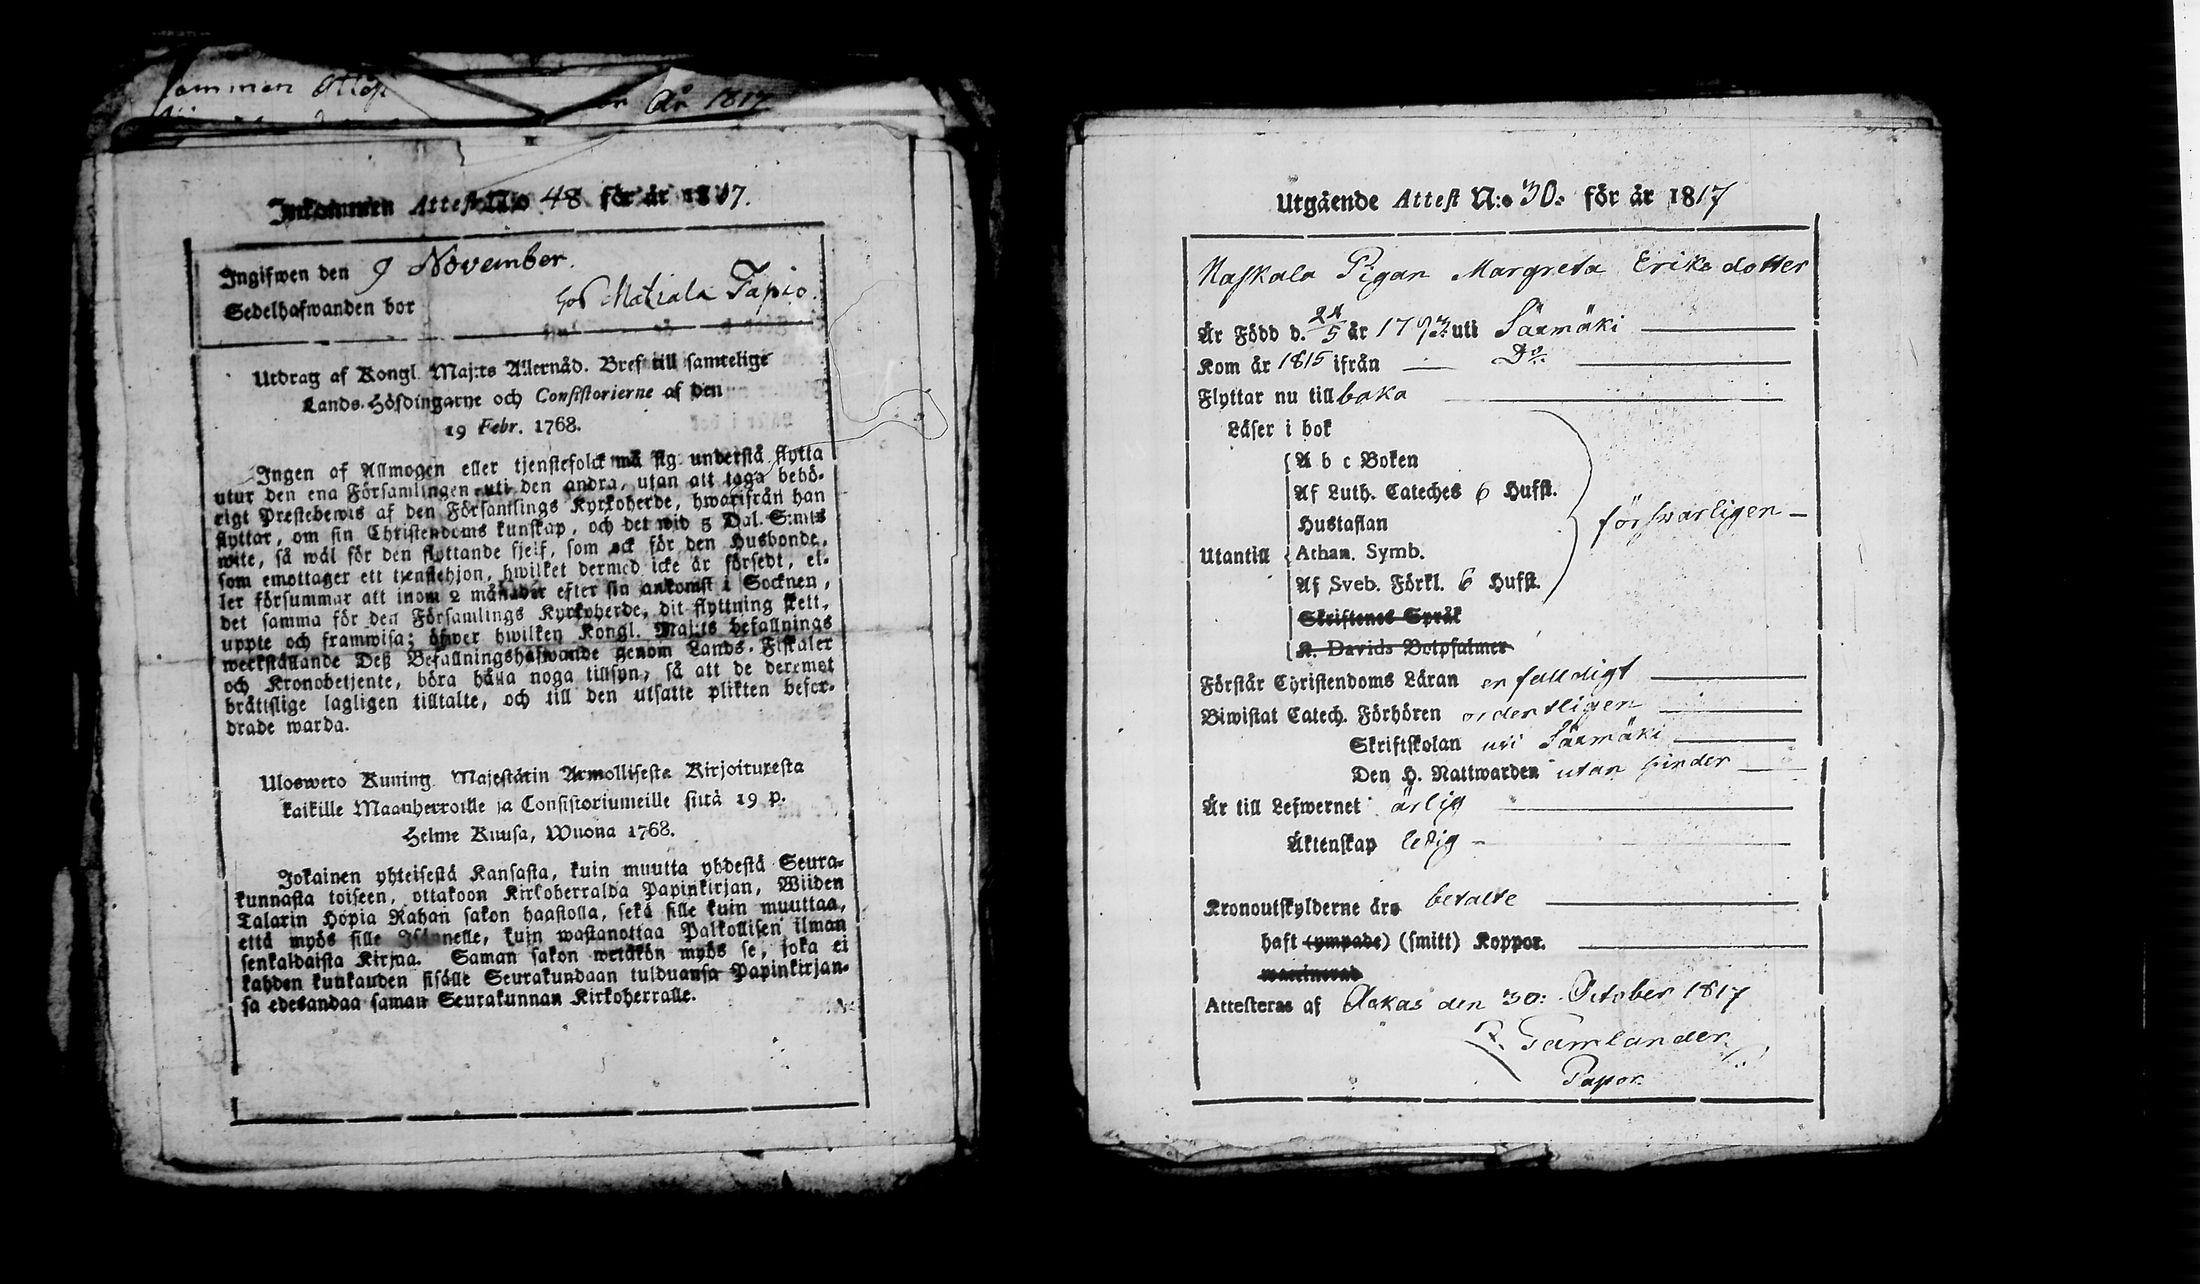 ommen Attest
År 1817
Inkommen Attest N:o 48 för år 1817.
Ingifwen den 9 November.
Sedelhafwanden bor hos Matiala Tapio.
Utdrag af Kongl. Maj:ts Allernåd. Bref till samtelige
Lands-Höfdingarne och Consistorierne af den
19 Febr. 1768.
Ingen af Allmogen eller tjenstefolck må sig understå flytta
utur den ena Församlingen uti den andra, utan att taga behö-
rigt Prestebewis af den Församlings Kyrkoherde, hwarifrån han
flyttar, om sin Christendoms kunskap, och det wid 5 Dal. S:mts
wite, så wäl för den flyttande sjelf, som ock för den Husbonde,
som emottager ett tjenstehjon, hwilket dermed icke är försedt, el-
ler försummar att inom 2 månader efter sin ankomst i Socknen,
det samma för den Församlings Kyrkoherde, dit flyttning skett,
uppte och framwisa; öfwer hwilken Kongl. Maj:ts befallnings
werkställande Deß Befallningshafwande genom Lands-Fiskaler
och Kronobetjente, böra hålla noga tillsyn, så att de deremot
bråttslige lagligen tilltalte, och till den utsatte plikten befor-
drade warda.
Ulosweto Kuning. Majestätin Armollisesta Kirjoituxesta
kaikille Maanherroille ja Consistoriumeille siitä 19 p.
Helme Kuusa, Wuona 1768.
Jokainen yhteisestä Kansasta, kuin muutta yhdestä Seura-
kunnasta toiseen, ottakoon Kirkoherralda Papinkirjan, Wiiden
Talarin Hopia Rahan sakon haastolla, sekä sille kuin muuttaa,
että myös sille Isännelle, kuin wastanottaa Palkollisen ilman
senkaldaista Kirjaa. Saman sakon wetäkön myös se, joka ei
kahden kuukauden sisälle Seurakundaan tulduansa Papinkirjan-
sa edesandaa saman Seurakunnan Kirkoherralle.
Utgående Attest N:o 30. för år 1817
Naskala Pigan Margreta Eriksdotter
Är Född d. 24/5 år 1793 uti Säxmäki
Kom år 1815 ifrån D:o
Flyttar nu till baka
Läser i bok
A b c Boken
Af Luth. Cateches 6 Hufst.
Hustaflan
försvarligen
Utantill Athan. Symb.
Af Sveb. Förkl. 6 Hufst.
Skriftenes Språk
K. Davids Botpsalmer
Förstår Christendoms Läran enfalldigt
Biwistat Catech. Förhören ordentligen
Skriftskolan uti Säxmäki
Den H. Nattwarden utan hinder
Är till Lefwernet ärlig
Äktenskap ledig
Kronoutskylderne äro betalte
haft (ympade) (smitt) Koppor.
waccinerad
Attesteras af Ackas den 30: October 1817
Gamlander
Papor.